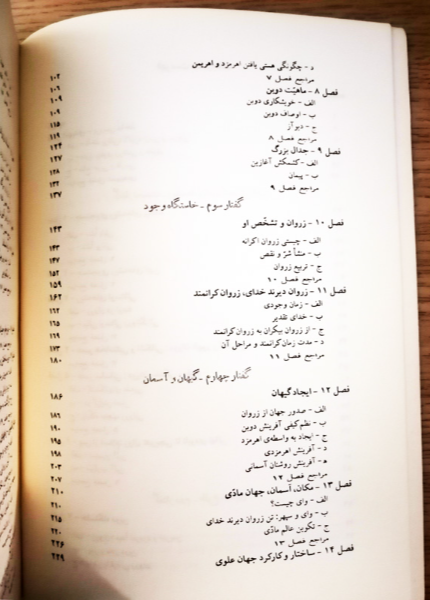 د - چگونگی هستی یافتن اهرمزد و اهریمن ۱۰۲
مراجع فصل ۷ ۱۰۶
فصل ۸ - ماهیّت دوبن ۱۰۹
الف - خویشکاری دوبن ۱۰۹
ب - اوصاف دوبن ۱۱۵
ج - دیوآز ۱۱۹
مراجع فصل ۸ ۱۲۴
فصل ۹ - جدال بزرگ ۱۲۷
الف - کشمکش آغازین ۱۲۸
ب - پیمان ۱۳۲
مراجع فصل ۹ ۱۳۷
گفتار سوم - خاستگاه وجود
فصل ۱۰ - زروان و تشخّص او ۱۴۳
الف - چیستی زروان اکرانه ۱۴۳
ب - منشأ شرّ و نقص ۱۴۷
ج - تربیع زروان ۱۵۲
مراجع فصل ۱۰ ۱۵۹
فصل ۱۱ - زروان دیرند خدای، زروان کرانمند ۱۶۲
الف - زمان وجودی ۱۶۲
ب - خدای تقدیر ۱۶۵
ج - از زروان بیکران به زروان کرانمند ۱۶۹
د - مدت زمان کرانمند و مراحل آن ۱۷۳
مراجع فصل ۱۱ ۱۸۰
گفتار چهارم - گیهان و آسمان
فصل ۱۲ - ایجاد گیهان ۱۸۶
الف - صدور جهان از زروان ۱۸۶
ب - نظم کیفی آفرینش دوبن ۱۹۰
ج - ایجاد به واسطه‌ی اهرمزد ۱۹۵
د - آفرینش اهرمزدی ۱۹۸
ه - آفرینش روشنان آسمانی ۲۰۳
مراجع فصل ۱۲ ۲۰۷
فصل ۱۳ - مکان، آسمان، جهان مادّی ۲۱۰
الف - وای چیست؟ ۲۱۰
ب - وای و سپهر: تن زروان دیرند خدای ۲۱۵
ج - تکوین عالم مادّی ۲۲۰
مراجع فصل ۱۳ ۲۲۶
فصل ۱۴ - ساختار و کارکرد جهان علوی ۲۲۹